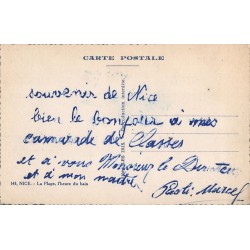 CARTE POSTALE
souvenir de Nice
bien le bonjour à mes
camarade de Classes
et à vous Monsieur le Directeur
et à mon maitre
Marcel
NICE. - La Plage, l'heure du bain